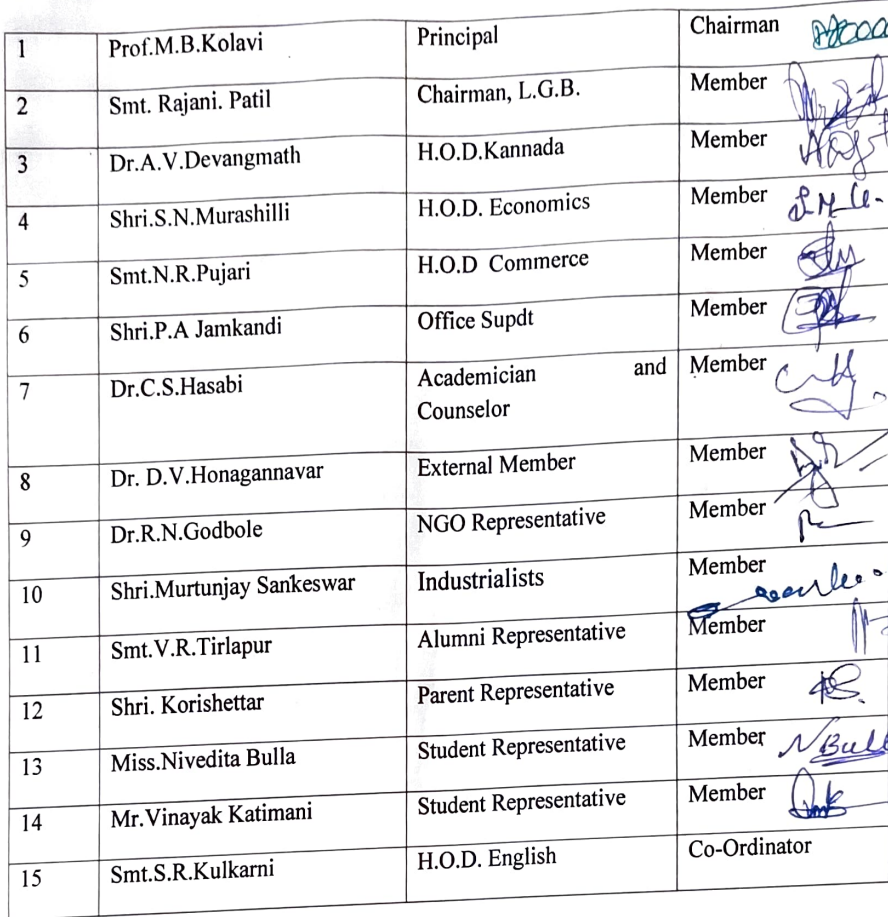 1 Prof.M.B.Kolavi Principal Chairman
2 Smt. Rajani. Patil Chairman, L.G.B. Member
3 Dr.A.V.Devangmath H.O.D.Kannada Member
4 Shri.S.N.Murashilli H.O.D. Economics Member
5 Smt.N.R.Pujari H.O.D Commerce Member
6 Shri.P.A Jamkandi Office Supdt Member
7 Dr.C.S.Hasabi Academician and Member
Counselor
8 Dr. D.V.Honagannavar External Member Member
9 Dr.R.N.Godbole NGO Representative Member
10 Shri.Murtunjay Sankeswar Industrialists Member
11 Smt.V.R.Tirlapur Alumni Representative Member
12 Shri. Korishettar Parent Representative Member
13 Miss.Nivedita Bulla Student Representative Member
14 Mr.Vinayak Katimani Student Representative Member
15 Smt.S.R.Kulkarni H.O.D. English Co-Ordinator